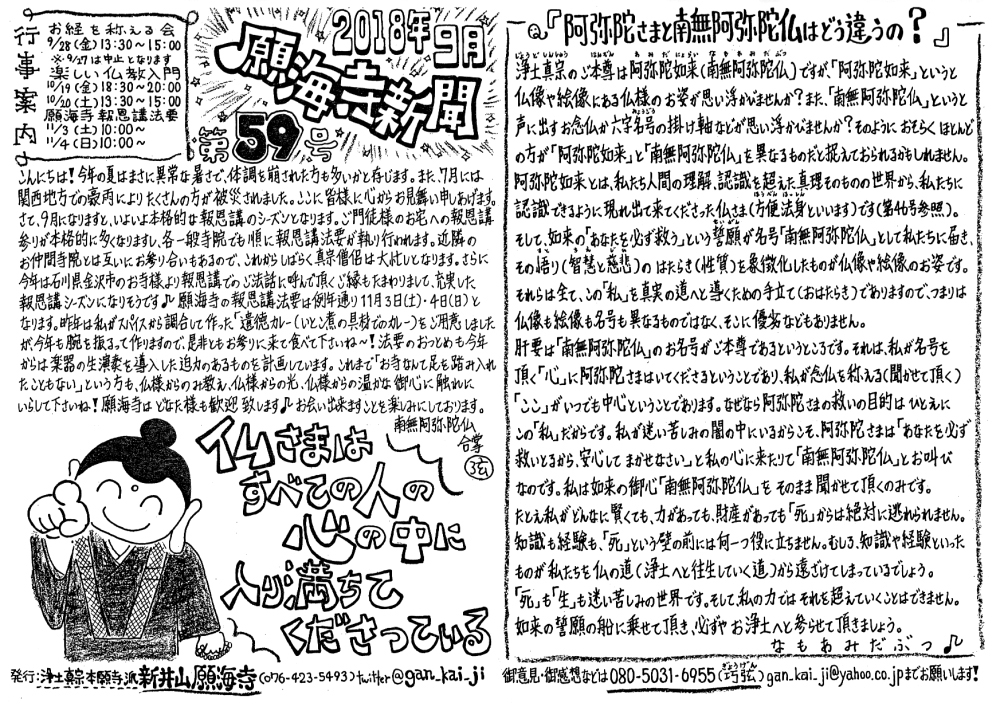 行事案内
お経を称える会
9/28(金)13:30〜15:00
※9/27は中止となります
楽しい仏教入門
10/19(金)18:30〜20:00
10/20(土)13:30〜15:00
願海寺 報恩講法要
11/3(土)10:00〜
11/4(日)10:00〜
2018年9月
願海寺新聞
第59号
こんにちは!今年の夏はまさに異常な暑さで、体調を崩された方も多いかと存じます。また、7月には
関西地方での豪雨によりたくさんの方が被災されました。ここに皆様に心からお見舞い申しあげます。
さて、9月になりますと、いよいよ本格的な報恩講のシーズンとなります。ご門徒様のお宅への報恩講
参りが本格的に多くなりますし、各一般寺院でも順に報恩講法要が執り行われます。近隣の
お仲間寺院とは互いにお参り合いもあるので、これからしばらく真宗僧侶は大忙しとなります。さらに
今年は石川県金沢市のお寺様より報恩講でのご法話に呼んで頂くご縁もたまわりまして、充実した
報恩講シーズンになりそうです♪願海寺の報恩講法要は例年通り11月3日(土)・4日(日)と
なります。昨年は私がスパイスから調合して作った「遺徳カレー(いとこ煮の具材でのカレー)をご用意しました
が、今年も腕を振るって作りますので、是非ともお参りに来て食べて下さいね〜!法要のおつとめも今年
からは楽器の生演奏を導入した迫力のあるものを計画しています。これまで「お寺なんて足を踏み入れ
たこともない」という方も、仏様からのみ教え、仏様からの光、仏様からの温かな御心に触れに
いらして下さいね!願海寺はどなた様も歓迎致します♪お会い出来ますことを楽しみにしております。
南無阿弥陀仏
合掌
弦
仏さまは
すべての人の
心の中に
入り満ちて
くださっている
発行:浄土真宗本願寺派 新井山願海寺(076-423-5493)twitter@gan_kai_ji
Q.『阿弥陀さまと南無阿弥陀仏はどう違うの?』
浄土真宗のご本尊は阿弥陀如来(南無阿弥陀仏)ですが、「阿弥陀如来」というと
仏像や絵像にある仏様のお姿が思い浮かびませんか?また、「南無阿弥陀仏」というと
声に出すお念仏か六字名号の掛け軸などが思い浮かびませんか?そのようにおそらくほとんど
の方が「阿弥陀如来」と「南無阿弥陀仏」を異なるものだと捉えておられるかもしれません。
阿弥陀如来とは、私たち人間の理解、認識を超えた真理そのものの世界から、私たちに
認識できるように現れ出て来てくださった仏さま(方便法身といいます)です(第46号参照)。
そして、如来の「あなたを必ず救う」という誓願が名号「南無阿弥陀仏」として私たちに届き、
その悟り(智慧と慈悲)のはたらき(性質)を象徴化したものが仏像や絵像のお姿です。
それらは全て、この「私」を真実の道へと導くための手立て(おはたらき)でありますので、つまりは
仏像も絵像も名号も異なるものではなく、そこに優劣などもありません。
肝要は「南無阿弥陀仏」のお名号がご本尊であるというところです。それは、私が名号を
頂く「心」に阿弥陀さまはいてくださるということであり、私が念仏を称える(聞かせて頂く)
「ここ」がいつでも中心ということであります。なぜなら阿弥陀さまの救いの目的はひとえに
この「私」だからです。私が迷い苦しみの闇の中にいるからこそ、阿弥陀さまは「あなたを必ず
救いとるから、安心してまかせなさい」と私の心に来たりて「南無阿弥陀仏」とお叫び
なのです。私は如来の御心「南無阿弥陀仏」をそのまま聞かせて頂くのみです。
たとえ私がどんなに賢くても、力があっても、財産があっても「死」からは絶対に逃れられません。
知識も経験も、「死」という壁の前には何一つ役に立ちません。むしろ、知識や経験といった
ものが私たちを仏の道(浄土へと往生していく道)から遠ざけてしまっているでしょう。
「死」も「生」も迷い苦しみの世界です。そして、私の力ではそれを超えていくことはできません。
如来の誓願の船に乗せて頂き、必ずやお浄土へと参らせて頂きましょう。
なもあみだぶつ♪
御意見・御感想などは080-5031-6955(巧弦)gan_kai_ji@yahoo.co.jpまでお願いします!